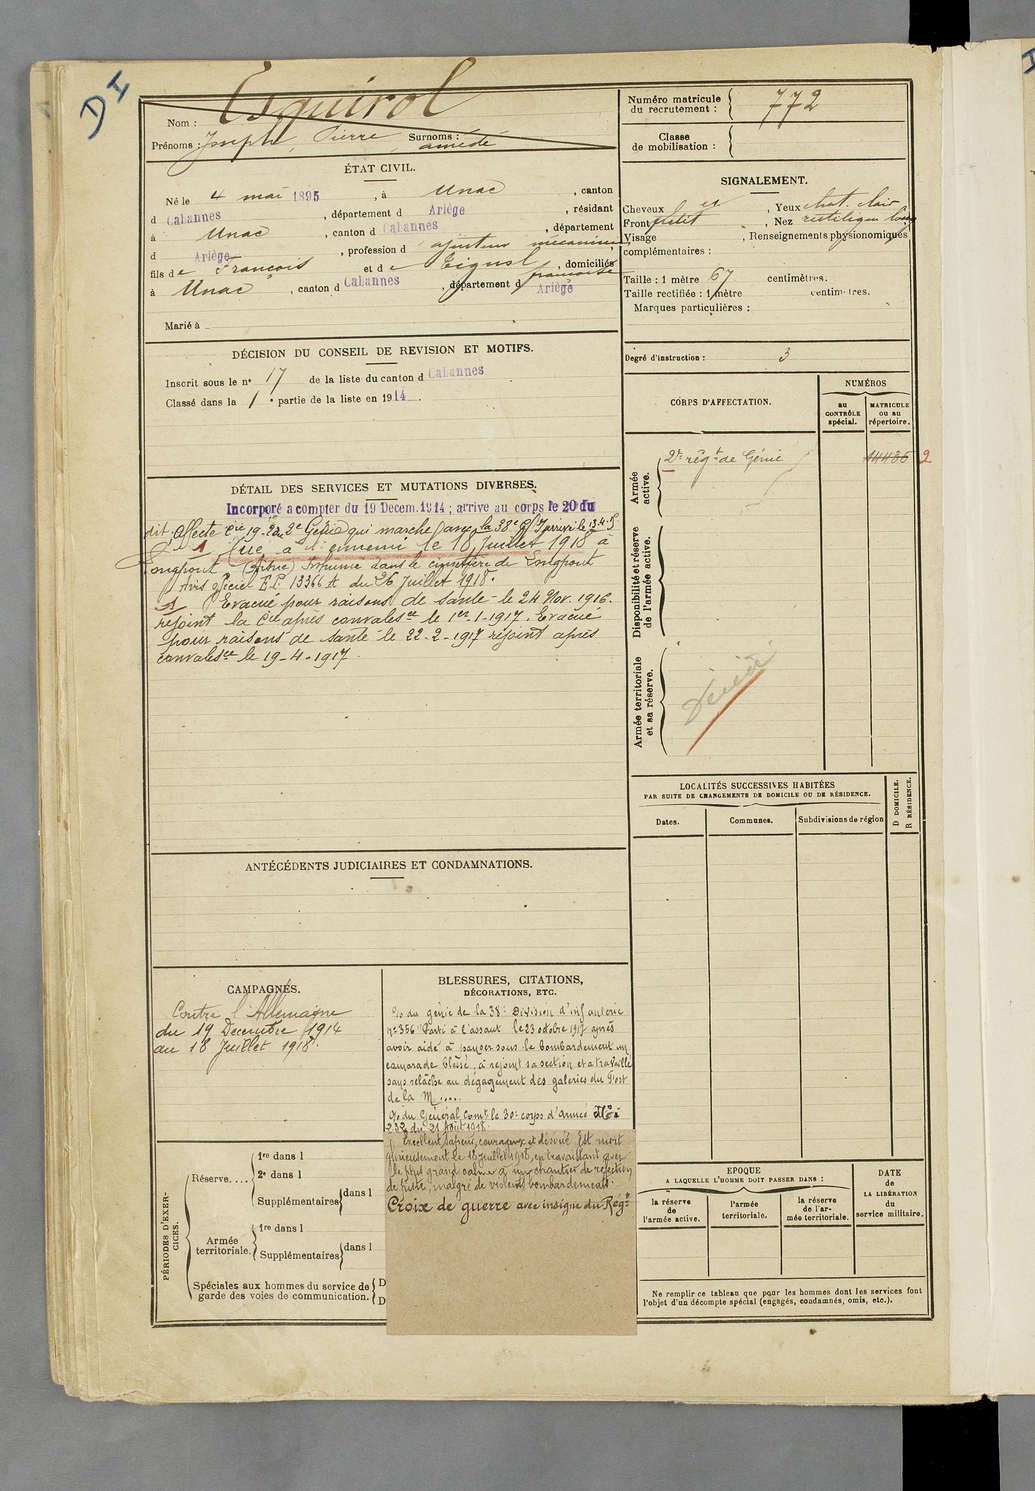 DI
Nom : Esquirol
Prénoms : Joseph, Pierre Surnoms : amédé
Numéro matricule du recrutement : 772
Classe de mobilisation :
ÉTAT CIVIL.
Né le 4 mai 1895, à Unac, canton
d Cabannes, département d Ariège, résidant
à Unac, canton d Cabannes, département
d Ariège, profession d ajusteur mécanicien
fils de François et de françoise, domiciliés
à Unac, canton d Cabannes, département d Ariège
Marié à
SIGNALEMENT.
Cheveux et, Yeux chat. clair
Front petit, Nez rectiligne
Visage, Renseignements physionomiques
complémentaires :
Taille : 1 mètre 67 centimètres.
Taille rectifiée : 1 mètre centimètres.
Marques particulières :
Degré d'instruction : 3
DÉCISION DU CONSEIL DE REVISION ET MOTIFS.
Inscrit sous le nº 17 de la liste du canton d Cabannes
Classé dans la 1e partie de la liste en 1914.
CORPS D'AFFECTATION.
NUMÉROS
au CONTRÔLE spécial.
MATRICULE ou au répertoire.
Armée active.
2e régt de Génie 14435 2
Disponibilité et réserve de l'armée active.
Armée territoriale et sa réserve.
DÉTAIL DES SERVICES ET MUTATIONS DIVERSES.
Incorporé a compter du 19 Decem. 1914 ; arrive au corps le 20 du
dit. Affecté Cie 19-2 du 2e Génie qui marche avec la 38e arrivé le
1 Tué à l'ennemi le 18 Juillet 1918 à
Longpont (Aisne) Inhumé dans le cimetière de Longpont
Avis officiel E.P. 13366 A du 26 Juillet 1918.
Evacué pour raisons de santé le 24 Nov. 1916.
rejoint la Cie après convalesce le 1er-1-1917. Evacué
pour raisons de santé le 22-2-1917 rejoint après
convalesce le 19-4-1917
LOCALITÉS SUCCESSIVES HABITÉES
PAR SUITE DE CHANGEMENTS DE DOMICILE OU DE RÉSIDENCE.
Dates.
Communes.
Subdivisions de région
D DOMICILE.
R RÉSIDENCE.
ANTÉCÉDENTS JUDICIAIRES ET CONDAMNATIONS.
CAMPAGNES.
Contre l'Allemagne
du 19 Decembre 1914
au 18 Juillet 1918.
BLESSURES, CITATIONS,
DÉCORATIONS, ETC.
% du génie de la 38e Division d'infanterie
nº 356 : Parti à l'assaut le 23 octobre 1917 après
avoir aidé à panser sous le bombardement un
camarade blessé, a rejoint sa section et a travaillé
sans relâche au dégagement des galeries du Fort
de la M.....
% du Général Comt le 30e corps d'armée
232 du 21 Août 1918.
Excellent sapeur, courageux et dévoué. Est mort
glorieusement le 18 juillet 1918, en travaillant avec
le plus grand calme à un chantier de refection
de piste, malgré de violents bombardements.
Croix de guerre avec insigne du Régt
PÉRIODES D'EXERCICES.
Réserve....
1re dans l
2e dans l
Supplémentaires dans l
Armée territoriale.
1re dans l
Supplémentaires dans l
Spéciales aux hommes du service de garde des voies de communication.
D
D
EPOQUE
A LAQUELLE L'HOMME DOIT PASSER DANS :
la réserve de l'armée active.
l'armée territoriale.
la réserve de l'armée territoriale.
DATE DE LA LIBÉRATION du service militaire.
Ne remplir ce tableau que pour les hommes dont les services font
l'objet d'un décompte spécial (engagés, condamnés, omis, etc.).